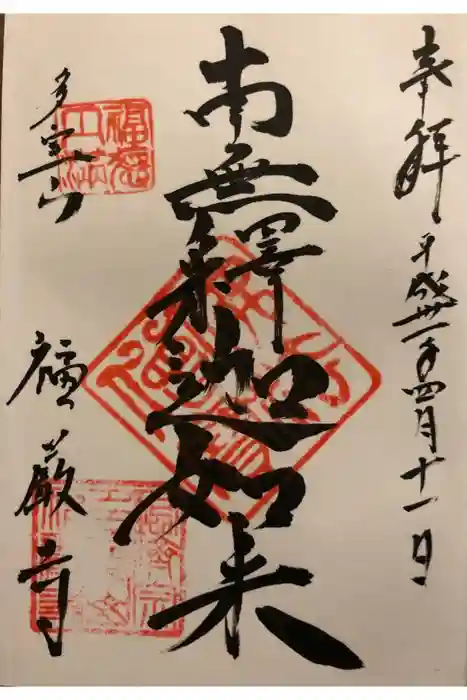 奉拝 平成卅一年四月十一日
南無釋迦如来
多宝山
福厳寺